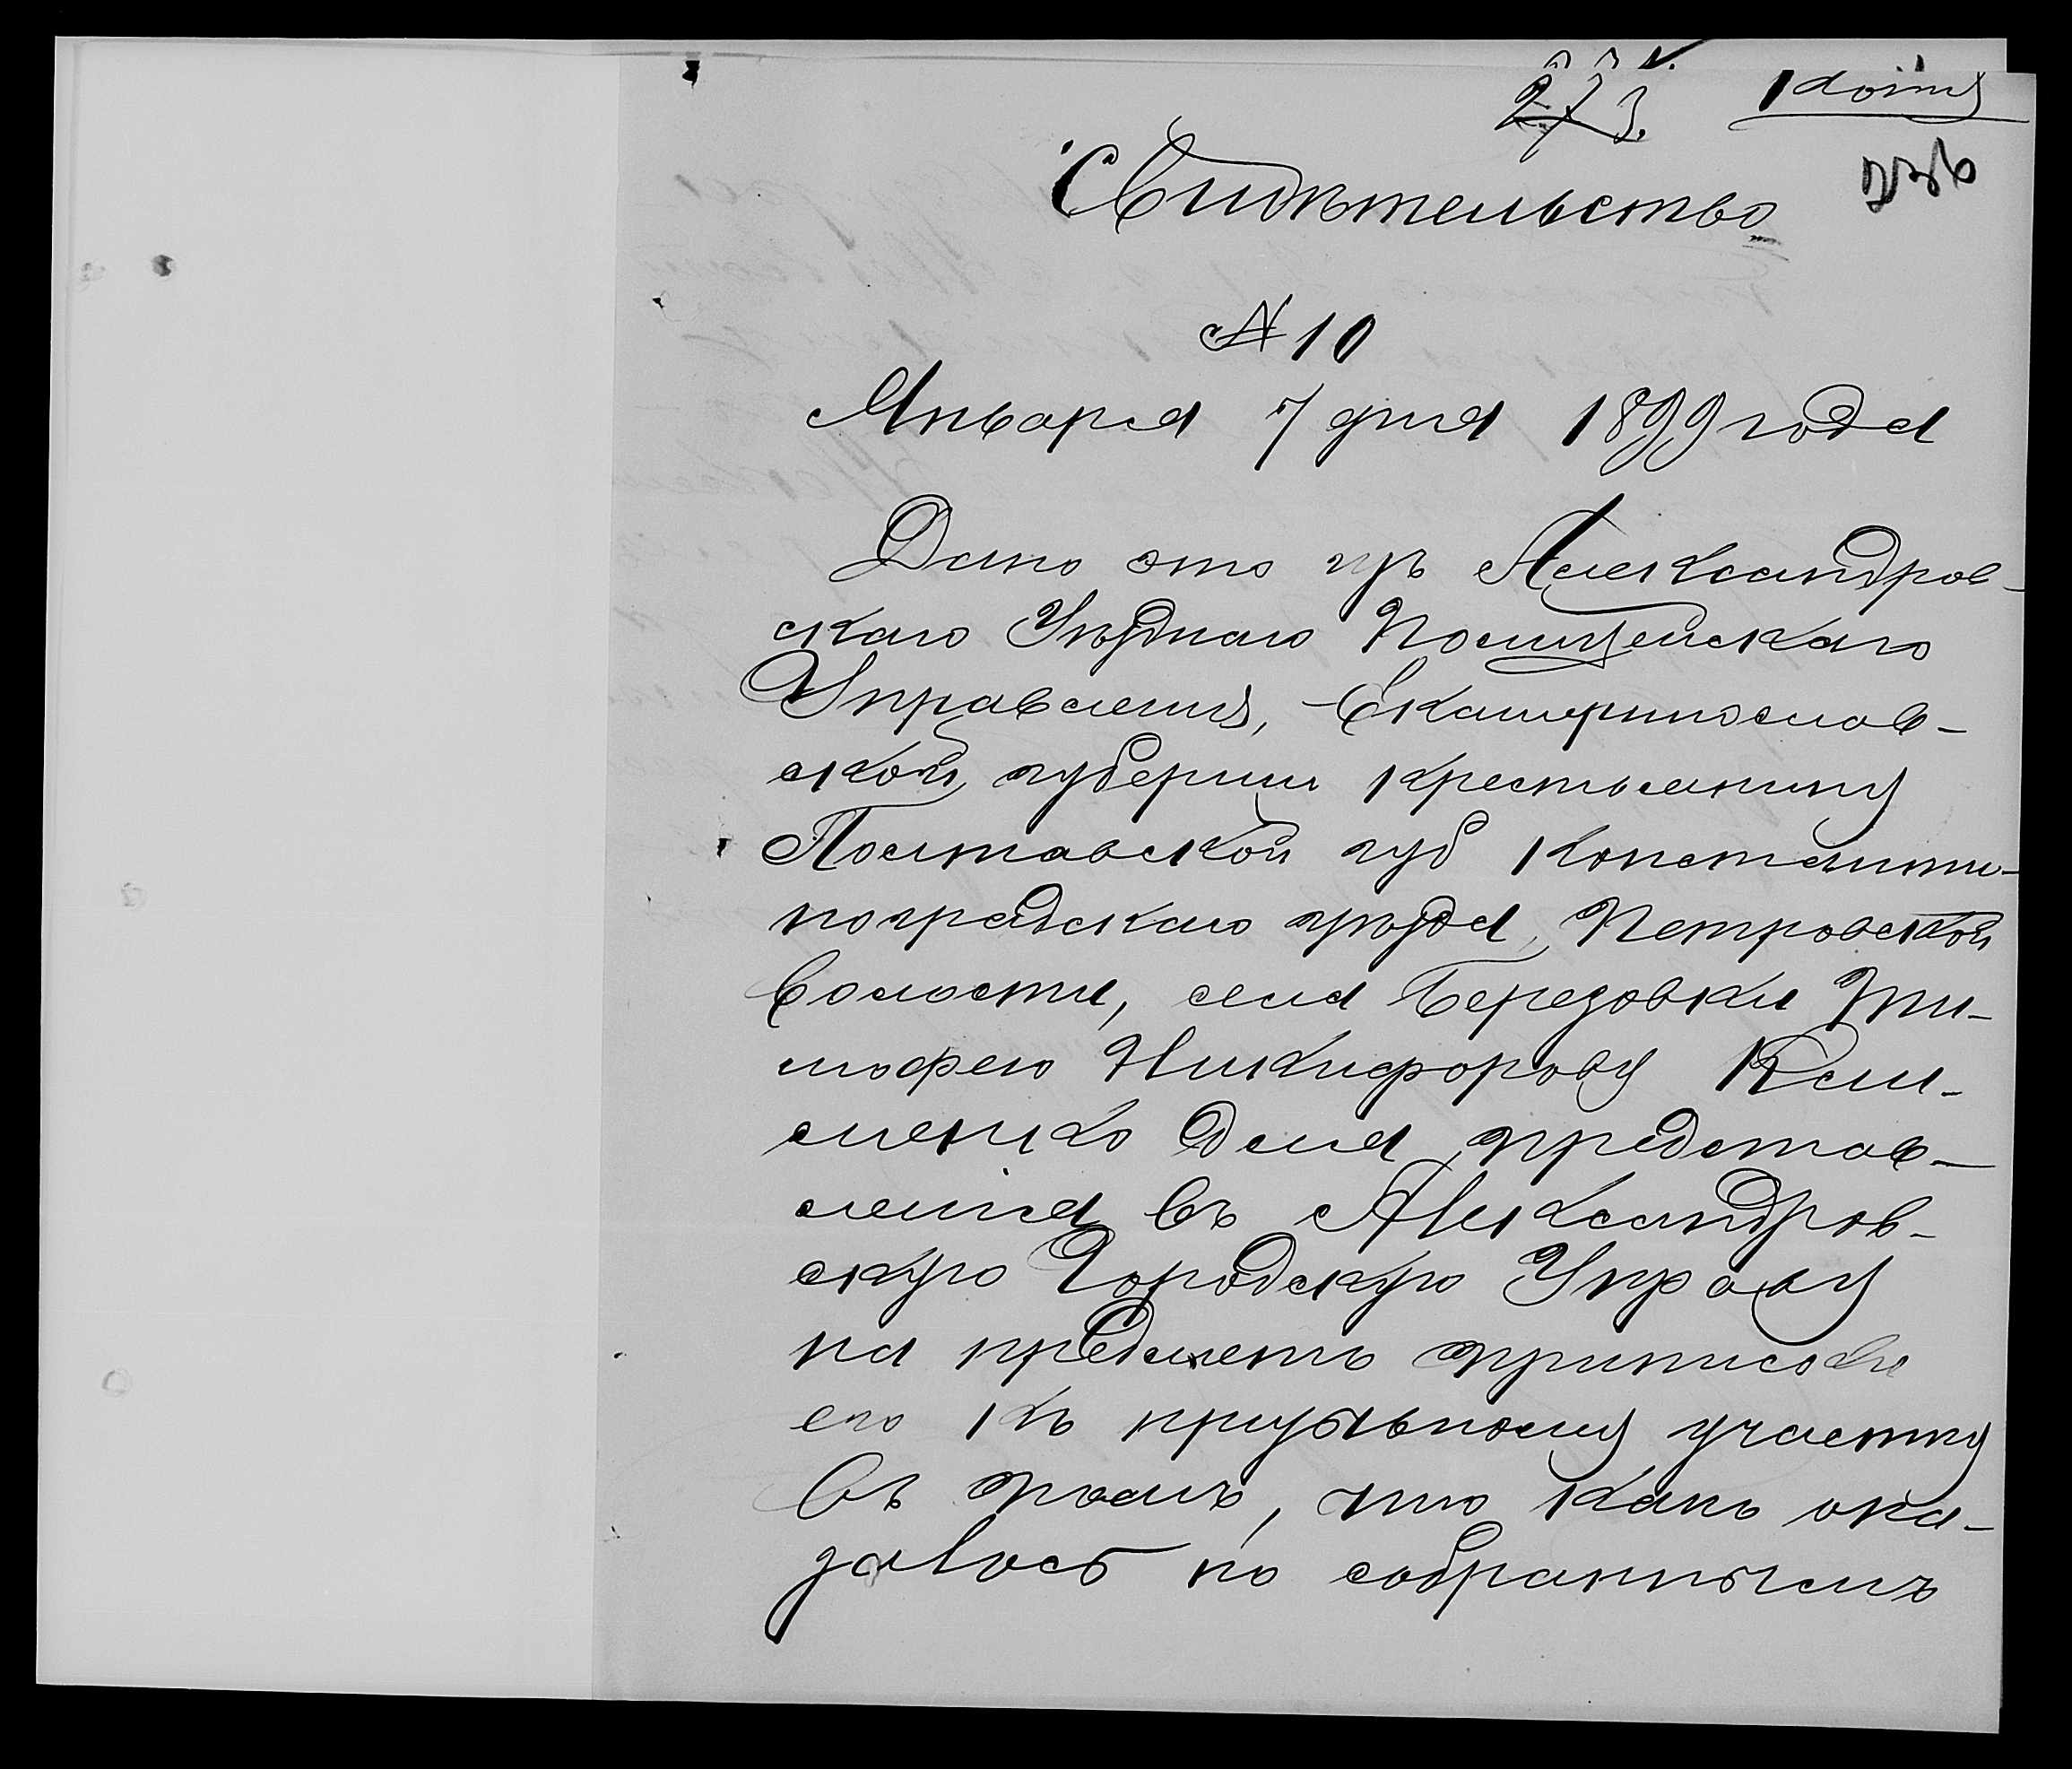 273.
Копія
Свидѣтельство
№ 10
Января 7 дня 1899 года
Дано это изъ Александров-
скаго Уѣзднаго Полицейскаго
Управленія, Екатеринослав-
ской губерніи крестьянину
Полтавской губ Константи-
ноградскаго уѣзда, Петровской
волости, села Березовки Ти-
мофею Никифорову Кли-
менко для представ-
ленія въ Александров-
скую Городскую Управу
на предметъ приписки
его къ призывному участку
въ томъ, что какъ ока-
залось по собраннымъ